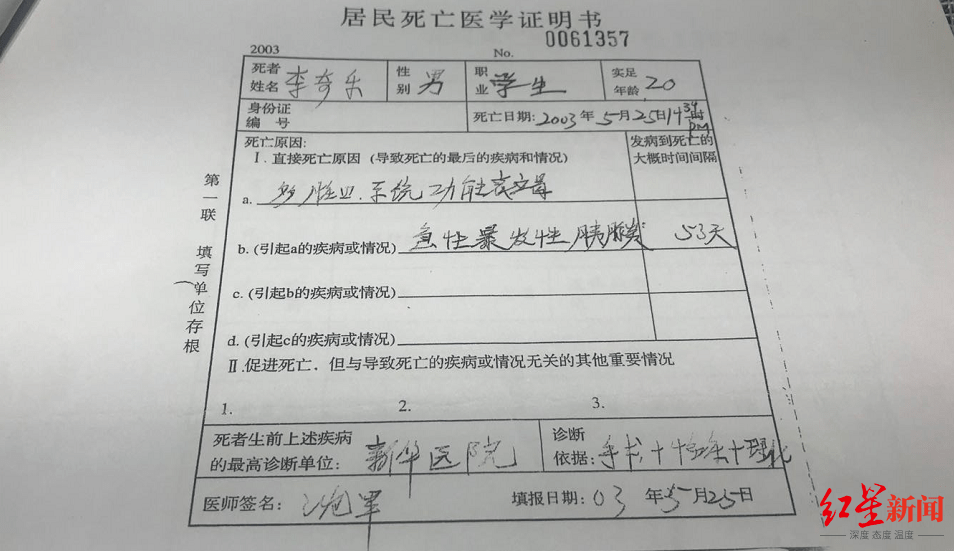 居民死亡医学证明书
2003 No. 0061357
死者姓名 李奇乐 性别 男 职业 学生 实足年龄 20
身份证编号 死亡日期: 2003年5月25日14时 PM
死亡原因: 发病到死亡的大概时间间隔
I. 直接死亡原因 (导致死亡的最后的疾病和情况)
a. 多脏器系统功能衰竭
b. (引起a的疾病或情况) 急性暴发性胰腺炎 53天
c. (引起b的疾病或情况)
d. (引起c的疾病或情况)
II.促进死亡，但与导致死亡的疾病或情况无关的其他重要情况
1. 2. 3.
死者生前上述疾病的最高诊断单位: 新华医院 诊断依据: 手术+临床+理化
医师签名: 填报日期: 03年5月25日
第一联 填写单位存根
红星新闻
深度 态度 温度